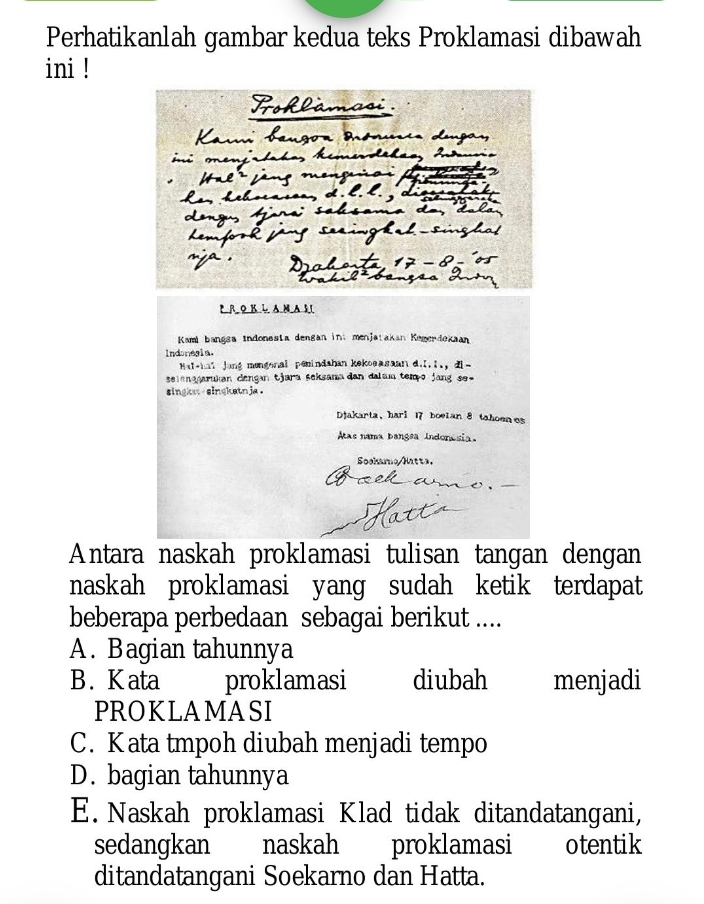 Perhatikanlah gambar kedua teks Proklamasi dibawah
ini !
Proklamasi.
Kami bangsa Indonesia dengan
ini menjatakan kemerdekaan Indonesia
Hal² jang mengenai
d.l.l.,
dengan tjara saksama dan dalam
tempoh jang sesingkat-singkat
nja.
Djakarta, 17 - 8 - '05
Wakil² bangsa Indon
P R O K L A M A S I
Kami bangsa Indonesia dengan ini menjatakan Kemerdekaan
Indonesia.
Hal-hal jang mengenai pemindahan kekoeasaan d.l.l., di-
selenggarakan dengan tjara seksama dan dalam tempo jang se-
singkat-singkatnja.
Djakarta, hari 17 boelan 8 tahoen 05
Atas nama bangsa Indonesia.
Soekarno/Hatta.
Soekarno.—
Hatta
Antara naskah proklamasi tulisan tangan dengan
naskah proklamasi yang sudah ketik terdapat
beberapa perbedaan sebagai berikut ....
A. Bagian tahunnya
B. Kata proklamasi diubah menjadi
PROKLAMASI
C. Kata tmpoh diubah menjadi tempo
D. bagian tahunnya
E. Naskah proklamasi Klad tidak ditandatangani,
sedangkan naskah proklamasi otentik
ditandatangani Soekarno dan Hatta.